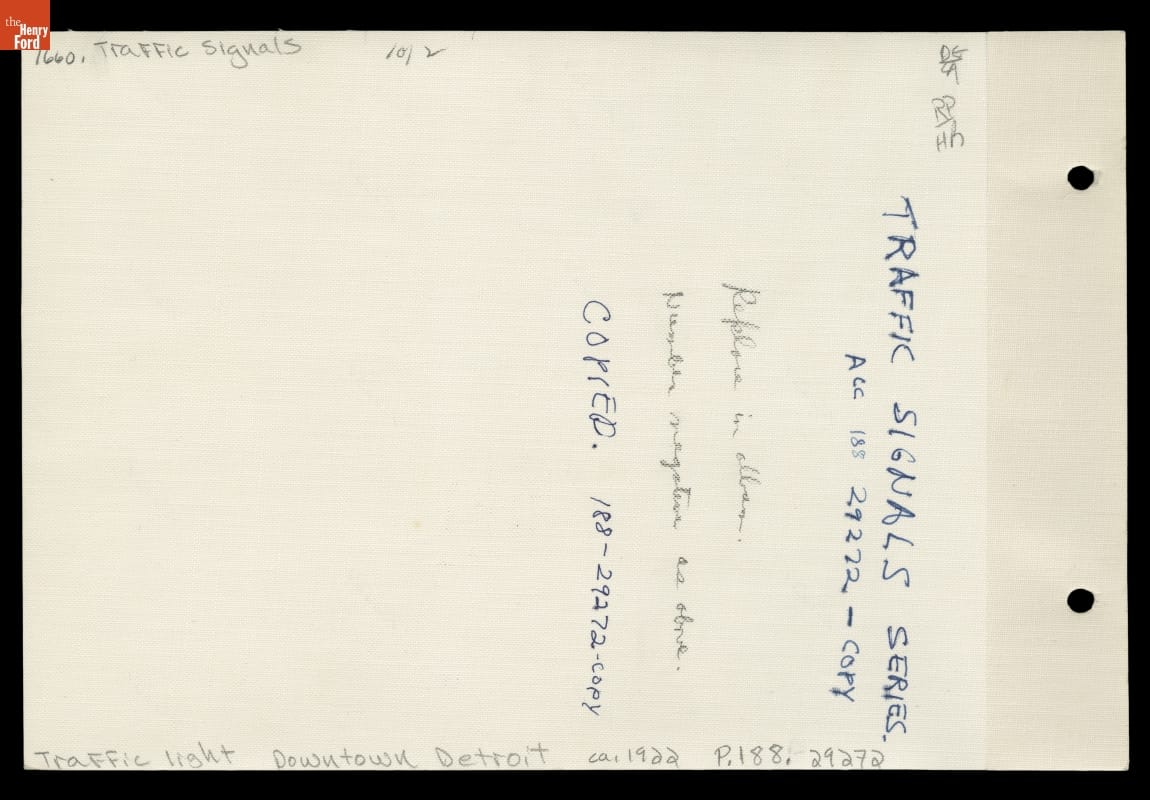 the
Henry
Ford
1660. Traffic Signals 10/2
TRAFFIC SIGNALS SERIES.
Acc 188 29272 - COPY
Replace in album.
Number negative as above.
COPIED. 188-29272-COPY
Traffic light Downtown Detroit ca. 1922 P.188. 29272